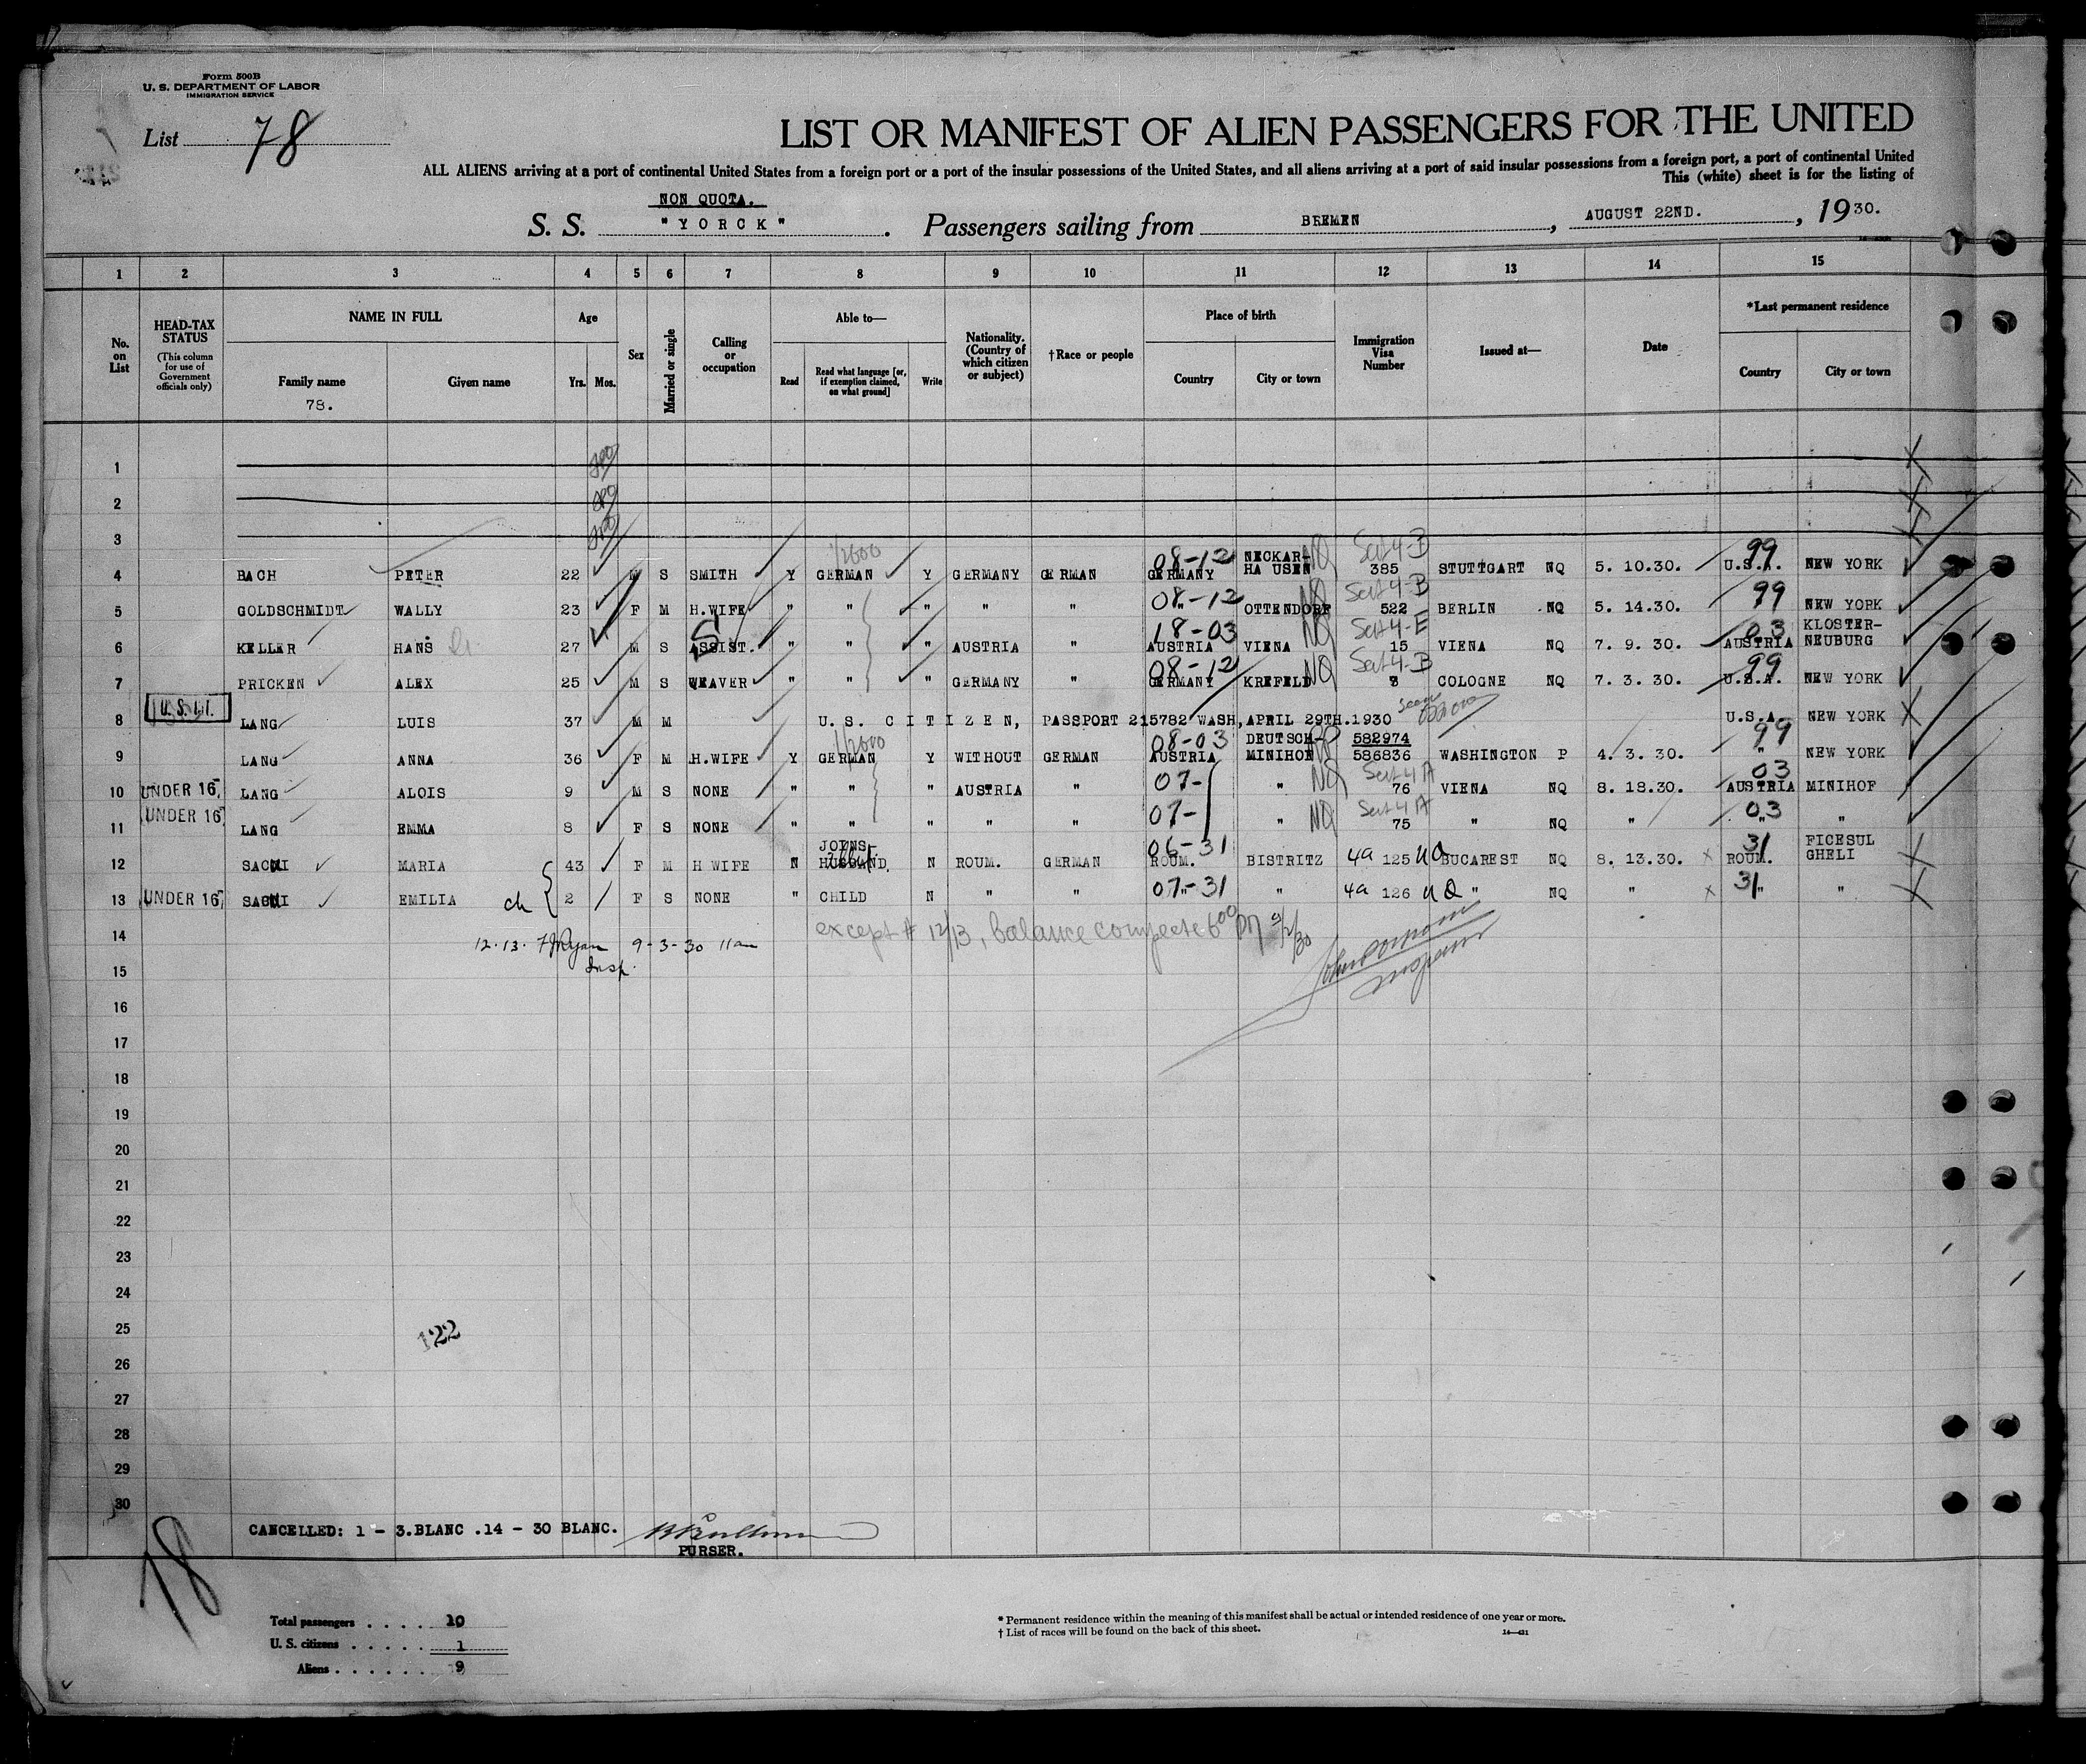 Form 500B
U. S. DEPARTMENT OF LABOR
IMMIGRATION SERVICE
List 78
LIST OR MANIFEST OF ALIEN PASSENGERS FOR THE UNITED
ALL ALIENS arriving at a port of continental United States from a foreign port or a port of the insular possessions of the United States, and all aliens arriving at a port of said insular possessions from a foreign port, a port of continental United
This (white) sheet is for the listing of
NON QUOTA.
S. S. "YORCK". Passengers sailing from BREMEN, AUGUST 22ND., 1930.
1 2 3 4 5 6 7 8 9 10 11 12 13 14 15
No. on List
HEAD-TAX STATUS (This column for use of Government officials only)
NAME IN FULL Family name Given name
78.
Age Yrs. Mos.
Sex
Married or single
Calling or occupation
Able to— Read Read what language [or, if exemption claimed, on what ground] Write
Nationality. (Country of which citizen or subject)
†Race or people
Place of birth Country City or town
Immigration Visa Number
Issued at—
Date
*Last permanent residence Country City or town
1
2
3
4 BACH PETER 22 M S SMITH Y GERMAN Y GERMANY GERMAN 08-12 GERMANY NECKAR-HAUSEN NQ Sec 4-B 385 STUTTGART NQ 5. 10.30. 99 U.S.A. NEW YORK
5 GOLDSCHMIDT WALLY 23 F M H.WIFE " " " " " 08-12 " OTTENDORF NQ Sec 4-B 522 BERLIN NQ 5. 14.30. 99 NEW YORK
6 KELLER HANS Dr. 27 M S ASSIST. " " " AUSTRIA " 18-03 AUSTRIA VIENA NQ Sec 4-E 15 VIENA NQ 7. 9. 30. 03 AUSTRIA KLOSTER-NEUBURG
7 PRICKEN ALEX 25 M S WEAVER " " " GERMANY " 08-12 GERMANY KREFELD NQ Sec 4-B 8 COLOGNE NQ 7. 3. 30. 99 U.S.A. NEW YORK
8 LANG LUIS 37 M M U. S. CITIZEN, PASSPORT 215782 WASH, APRIL 29TH.1930 U.S.A. NEW YORK
9 LANG ANNA 36 F M H.WIFE Y GERMAN Y WITHOUT GERMAN 08-03 AUSTRIA DEUTSCH-MINIHOF 582974 586836 WASHINGTON P 4. 3. 30. 99 " NEW YORK
10 UNDER 16 LANG ALOIS 9 M S NONE " " " AUSTRIA " 07- " NQ Sec 4 A 76 VIENA NQ 8. 18.30. 03 AUSTRIA MINIHOF
11 UNDER 16 LANG EMMA 8 F S NONE " " " " " 07- " NQ Sec 4 A 75 " NQ " 03 " "
12 SACMI MARIA 43 F M H WIFE N JOINS HUSBAND, N ROUM. GERMAN 06-31 ROUM. BISTRITZ 4a 125 NQ BUCAREST NQ 8. 13.30. 31 ROUM. FICESUL GHELI
13 UNDER 16 SACMI EMILIA ch 2 F S NONE " CHILD N " " 07-31 " " 4a 126 NQ " NQ " 31 " "
14 except # 12/13, balance
12-13. Ryan 9-3-30 11am
Insp.
15
16
17
18
19
20
21
22
23
24
25
26
27
28
29
30
122
CANCELLED: 1 - 3.BLANC .14 - 30 BLANC.
PURSER.
78
Total passengers . . . . 10
U. S. citizens . . . . . 1
Aliens . . . . . . 9
* Permanent residence within the meaning of this manifest shall be actual or intended residence of one year or more.
† List of races will be found on the back of this sheet.